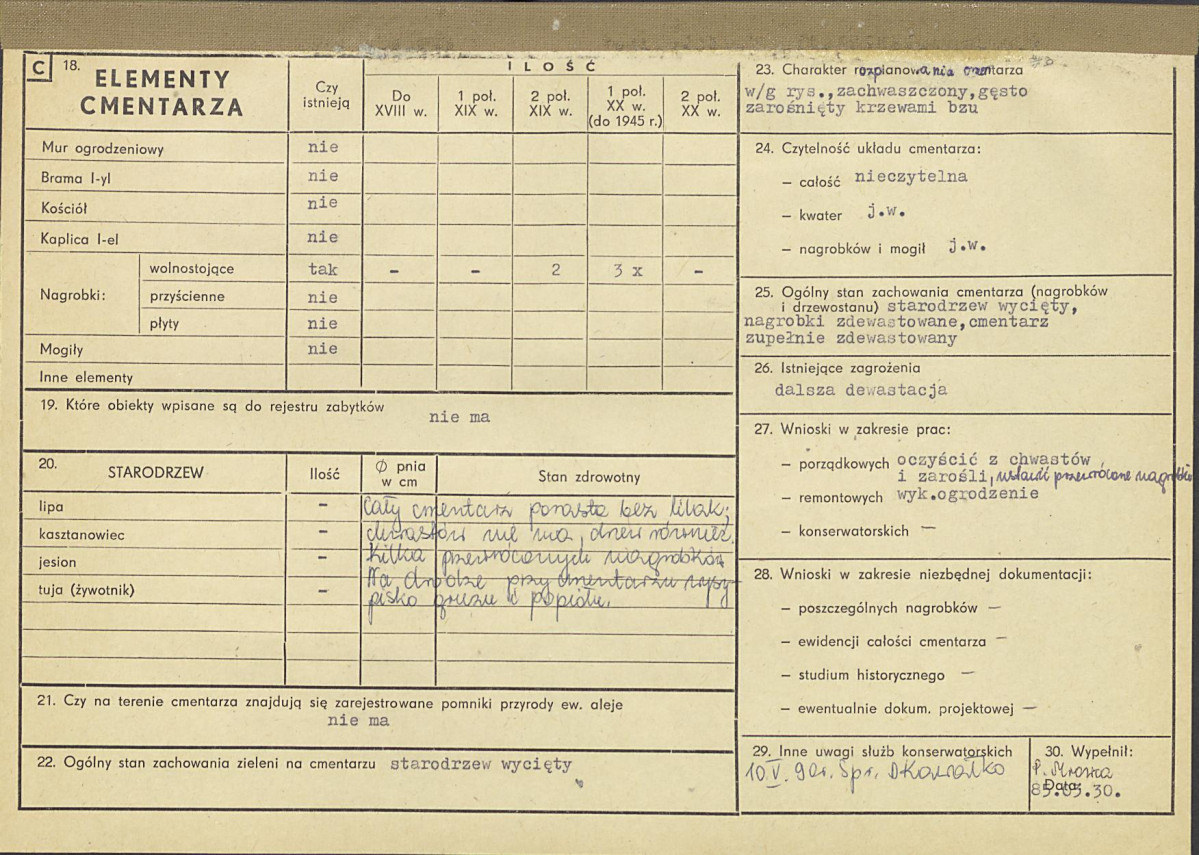 C 18. ELEMENTY CMENTARZA
Czy istnieją
ILOŚĆ
Do XVIII w.
1 poł. XIX w.
2 poł. XIX w.
1 poł. XX w. (do 1945 r.)
2 poł. XX w.
Mur ogrodzeniowy nie
Brama I-yl nie
Kościół nie
Kaplica I-el nie
Nagrobki:
wolnostojące tak - - 2 3 x -
przyścienne nie
płyty nie
Mogiły nie
Inne elementy
19. Które obiekty wpisane są do rejestru zabytków
nie ma
20. STARODRZEW Ilość Ø pnia w cm Stan zdrowotny
lipa -
kasztanowiec -
jesion -
tuja (żywotnik) -
Cały cmentarz porasta bez lilak;
chwastów nie ma, drzew również.
Kilka przewróconych nagrobków.
Na drodze przy cmentarzu wysy
pisko gruzu i popiołu.
21. Czy na terenie cmentarza znajdują się zarejestrowane pomniki przyrody ew. aleje
nie ma
22. Ogólny stan zachowania zieleni na cmentarzu starodrzew wycięty
23. Charakter rozplanowania cmentarza
w/g rys.,zachwaszczony,gęsto
zarośnięty krzewami bzu
24. Czytelność układu cmentarza:
– całość nieczytelna
– kwater j.w.
– nagrobków i mogił j.w.
25. Ogólny stan zachowania cmentarza (nagrobków
i drzewostanu) starodrzew wycięty,
nagrobki zdewastowane,cmentarz
zupełnie zdewastowany
26. Istniejące zagrożenia
dalsza dewastacja
27. Wnioski w zakresie prac:
– porządkowych oczyścić z chwastów
i zarośli, ustawić przewrócone nagrobki
– remontowych wyk.ogrodzenie
– konserwatorskich –
28. Wnioski w zakresie niezbędnej dokumentacji:
– poszczególnych nagrobków –
– ewidencji całości cmentarza –
– studium historycznego –
– ewentualnie dokum. projektowej –
29. Inne uwagi służb konserwatorskich
10.V.90r. Spr. DKowalko
30. Wypełnił:
Data:
85.05.30.